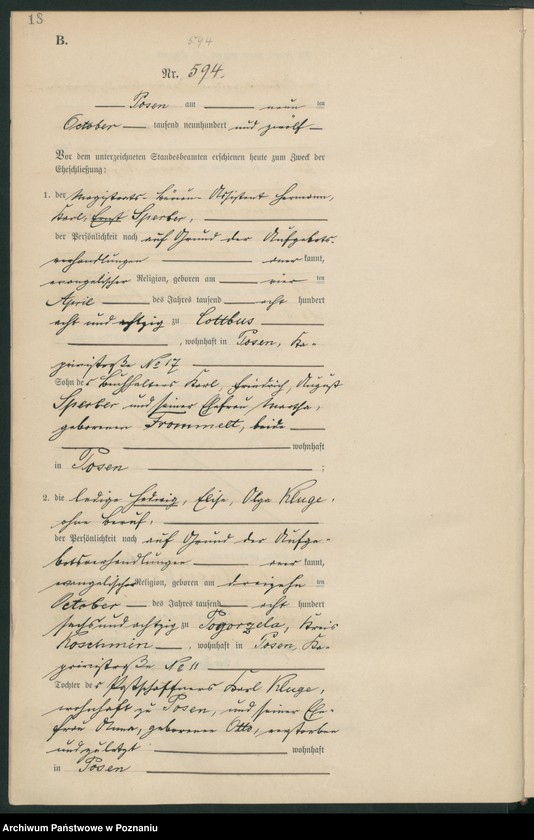 18
B.
594
Nr. 594.
Posen am neun ten
October tausend neunhundert und zwölf
Vor dem unterzeichneten Standesbeamten erschienen heute zum Zweck der
Eheschließung:
1. der Magistrats-Büreau-Assistent Hermann,
Karl, Ernst Sperber,
der Persönlichkeit nach auf Grund der Aufgebots-
verhandlungen aner kannt,
evangelischer Religion, geboren am vier ten
April des Jahres tausend acht hundert
acht und achtzig zu Cottbus
, wohnhaft in Posen, Ka-
pririvistraße No 17
Sohn des Buchhalters Karl, Friedrich, August
Sperber und seiner Ehefrau Martha,
geborenen Frommelt, beide
wohnhaft
in Posen ;
2. die ledige Hedwig, Elise, Olga Kluge,
ohne Beruf,
der Persönlichkeit nach auf Grund der Aufge-
botsverhandlungen aner kannt,
evangelischer Religion, geboren am dreizehn ten
October des Jahres tausend acht hundert
sechsundachtzig zu Pogorzela, Kreis
Koschmin , wohnhaft in Posen, Ka-
privistraße No 11
Tochter des Postschaffners Karl Kluge,
wohnhaft zu Posen, und seiner Ehe-
frau Anna, geborenen Otto, verstorben
und zuletzt wohnhaft
in Posen
Archiwum Państwowe w Poznaniu